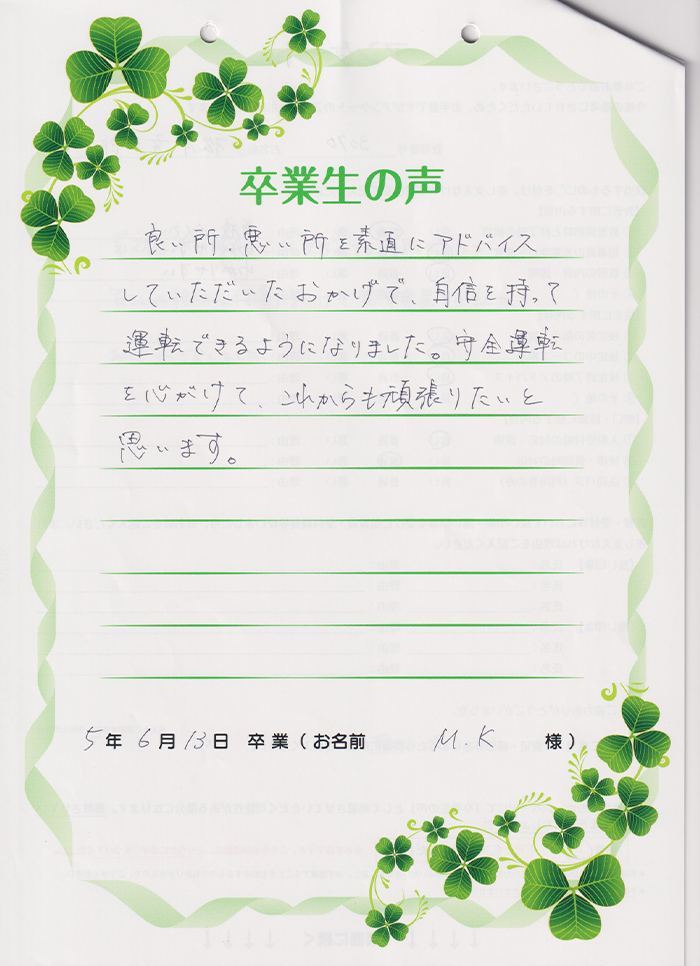 卒業生の声
良い所、悪い所を素直にアドバイス
していただいたおかげで、自信を持って
運転できるようになりました。安全運転
を心がけて、これからも頑張りたいと
思います。
5年6月13日 卒業(お名前 M K 様)